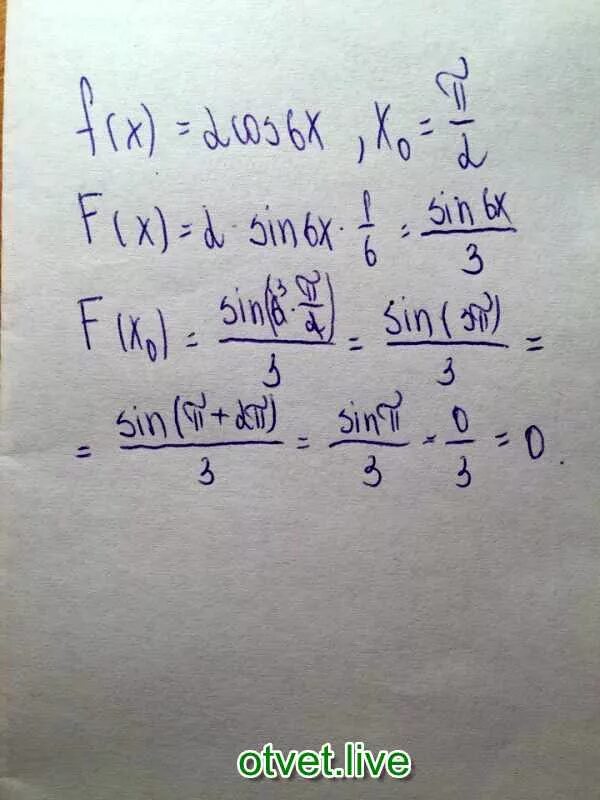 f(x) = 2cos6x , x₀ = π/2
F(x) = 2 · sin6x · 1/6 = sin6x/3
F(x₀) = sin(6³ · π/2)/3 = sin(3π)/3 =
= sin(π+2π)/3 = sinπ/3 = 0/3 = 0.
otvet.live